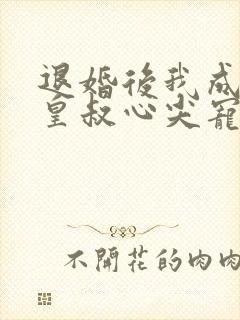 退婚後我成
皇叔心尖寵
不開花的肉肉